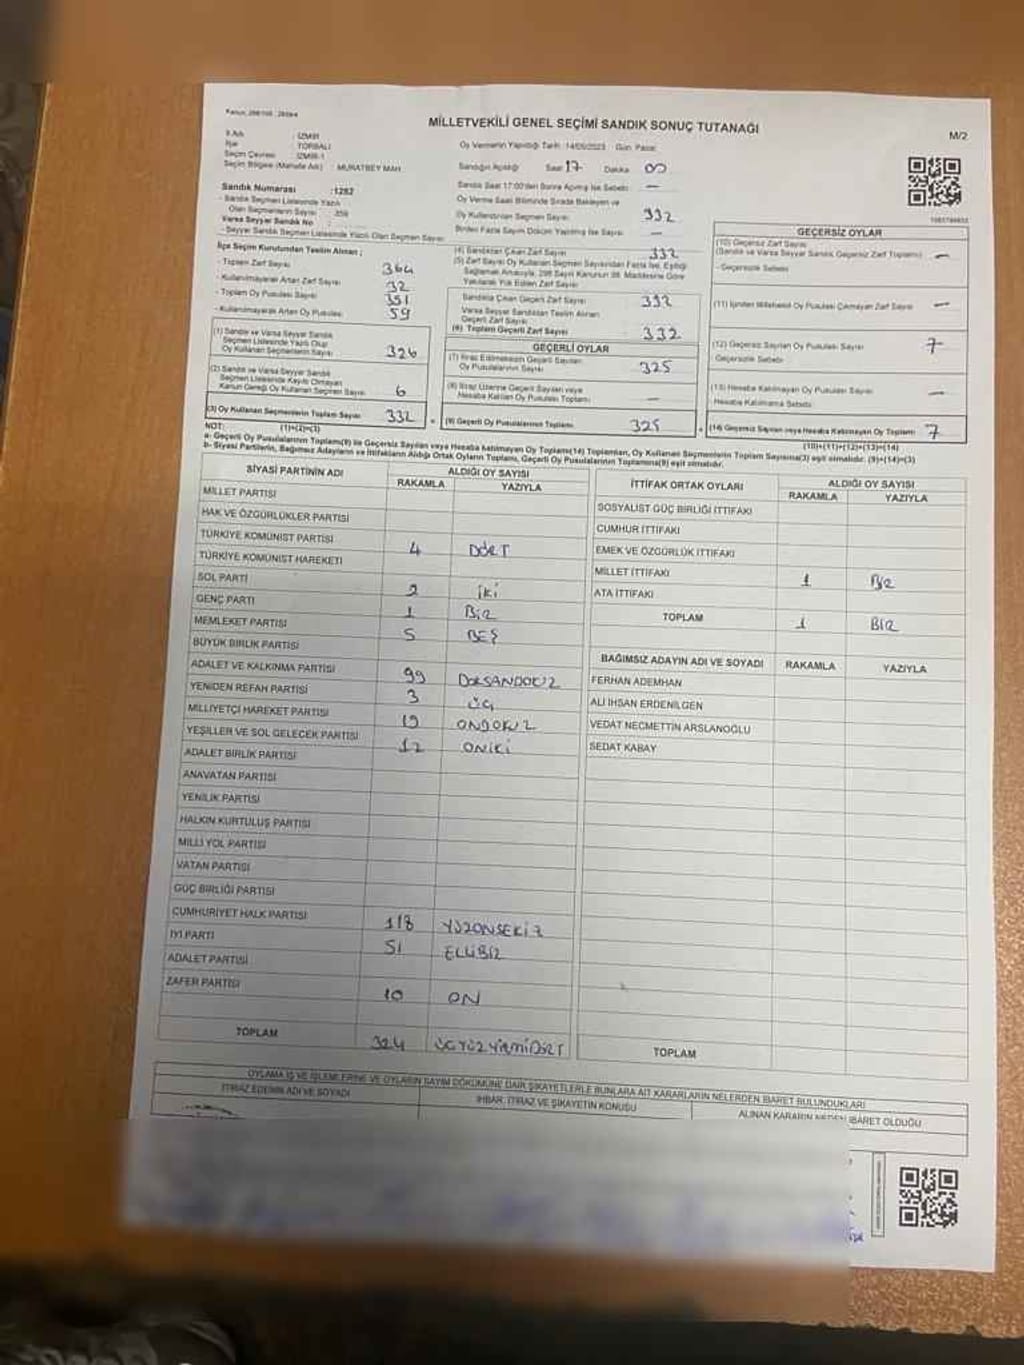 MİLLETVEKİLİ GENEL SEÇİMİ SANDIK SONUÇ TUTANAĞI
M/2
İl Adı : İZMİR
İlçe : TORBALI
Seçim Çevresi : İZMİR-1
Seçim Bölgesi (Mahalle Adı) : MURATBEY MAH
Oy Vermenin Yapıldığı Tarih: 14/05/2023 Gün: Pazar
Sandığın Açıldığı Saat 17 Dakika 00
Sandık Saat 17:00'den Sonra Açılmış İse Sebebi: —
Oy Verme Saati Bitiminde Sırada Bekleyen ve
Oy Kullandırılan Seçmen Sayısı: 332
Birden Fazla Sayım Döküm Yapılmış İse Sayısı: —
Sandık Numarası :1282
- Sandık Seçmen Listesinde Yazılı
Olan Seçmenlerin Sayısı
Varsa Seyyar Sandık No :
- Seyyar Sandık Seçmen Listesinde Yazılı Olan Seçmen Sayısı:
İlçe Seçim Kurulundan Teslim Alınan ;
- Toplam Zarf Sayısı 364
- Kullanılmayarak Artan Zarf Sayısı: 32
- Toplam Oy Pusulası Sayısı: 351
- Kullanılmayarak Artan Oy Pusulası: 59
(1) Sandık ve Varsa Seyyar Sandık
Seçmen Listesinde Yazılı Olup
Oy Kullanan Seçmenlerin Sayısı 326
(2) Sandık ve Varsa Seyyar Sandık
Seçmen Listesinde Kayıtlı Olmayan
Kanun Gereği Oy Kullanan Seçmen Sayısı: 6
(3) Oy Kullanan Seçmenlerin Toplam Sayısı: 332
(1)+(2)=(3)
(4) Sandıktan Çıkan Zarf Sayısı: 332
(5) Zarf Sayısı Oy Kullanan Seçmen Sayısından Fazla İse, Eşitliği
Sağlamak Amacıyla, 298 Sayılı Kanunun 98. Maddesine Göre
Yakılarak Yok Edilen Zarf Sayısı:
Sandıkta Çıkan Geçerli Zarf Sayısı: 332
Varsa Seyyar Sandıktan Teslim Alınan
Geçerli Zarf Sayısı:
(6) Toplam Geçerli Zarf Sayısı: 332
GEÇERLİ OYLAR
(7) İtiraz Edilmeksizin Geçerli Sayılan
Oy Pusulalarının Sayısı: 325
(8) İtiraz Üzerine Geçerli Sayılan veya
Hesaba Katılan Oy Pusulası Toplamı: —
(9) Geçerli Oy Pusulalarının Toplamı: 325
GEÇERSİZ OYLAR
(10) Geçersiz Zarf Sayısı
(Sandık ve Varsa Seyyar Sandık Geçersiz Zarf Toplamı) —
- Geçersizlik Sebebi:
(11) İçinden Milletvekili Oy Pusulası Çıkmayan Zarf Sayısı: —
(12) Geçersiz Sayılan Oy Pusulası Sayısı: 7
Geçersizlik Sebebi:
(13) Hesaba Katılmayan Oy Pusulası Sayısı: —
Hesaba Katılmama Sebebi:
(14) Geçersiz Sayılan veya Hesaba Katılmayan Oy Toplamı: 7
(10)+(11)+(12)+(13)=(14)
NOT:
a- Geçerli Oy Pusulalarının Toplamı(9) ile Geçersiz Sayılan veya Hesaba Katılmayan Oy Toplamı(14) Toplamları, Oy Kullanan Seçmenlerin Toplam Sayısına(3) eşit olmalıdır. (9)+(14)=(3)
b- Siyasi Partilerin, Bağımsız Adayların ve İttifakların Aldığı Ortak Oyların Toplamı, Geçerli Oy Pusulalarının Toplamına(9) eşit olmalıdır.
SİYASİ PARTİNİN ADI ALDIĞI OY SAYISI
RAKAMLA YAZIYLA
MİLLET PARTİSİ
HAK VE ÖZGÜRLÜKLER PARTİSİ
TÜRKİYE KOMÜNİST PARTİSİ
TÜRKİYE KOMÜNİST HAREKETİ 4 DÖRT
SOL PARTİ
GENÇ PARTİ 2 İKİ
MEMLEKET PARTİSİ 1 BİR
BÜYÜK BİRLİK PARTİSİ 5 BEŞ
ADALET VE KALKINMA PARTİSİ 99 DOKSANDOKUZ
YENİDEN REFAH PARTİSİ 3 ÜÇ
MİLLİYETÇİ HAREKET PARTİSİ 19 ONDOKUZ
YEŞİLLER VE SOL GELECEK PARTİSİ 12 ONİKİ
ADALET BİRLİK PARTİSİ
ANAVATAN PARTİSİ
YENİLİK PARTİSİ
HALKIN KURTULUŞ PARTİSİ
MİLLİ YOL PARTİSİ
VATAN PARTİSİ
GÜÇ BİRLİĞİ PARTİSİ
CUMHURİYET HALK PARTİSİ 118 YÜZONSEKİZ
İYİ PARTİ 51 ELLİBİR
ADALET PARTİSİ
ZAFER PARTİSİ 10 ON
TOPLAM 324 ÜÇYÜZYİRMİDÖRT
İTTİFAK ORTAK OYLARI ALDIĞI OY SAYISI
RAKAMLA YAZIYLA
SOSYALİST GÜÇ BİRLİĞİ İTTİFAKI
CUMHUR İTTİFAKI
EMEK VE ÖZGÜRLÜK İTTİFAKI
MİLLET İTTİFAKI 1 BİR
ATA İTTİFAKI
TOPLAM 1 BİR
BAĞIMSIZ ADAYIN ADI VE SOYADI RAKAMLA YAZIYLA
FERHAN ADEMHAN
ALİ İHSAN ERDENİLGEN
VEDAT NECMETTİN ARSLANOĞLU
SEDAT KABAY
TOPLAM
OYLAMA İŞ VE İŞLEMLERİNE VE OYLARIN SAYIM DÖKÜMÜNE DAİR ŞİKAYETLERLE BUNLARA AİT KARARLARIN NELERDEN İBARET BULUNDUKLARI
İTİRAZ EDENİN ADI VE SOYADI İHBAR, İTİRAZ VE ŞİKAYETİN KONUSU ALINAN KARARIN NEDEN İBARET OLDUĞU